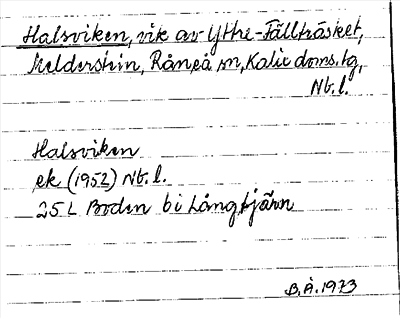 Halsviken, vik av Ytre-Fällträsket,
Melderstein, Råneå sn, Kalix doms.tg,
Nb.l.
Halsviken
ek (1952) Nb.l.
25 L Boden bi Långtjärn
B.Å. 1973